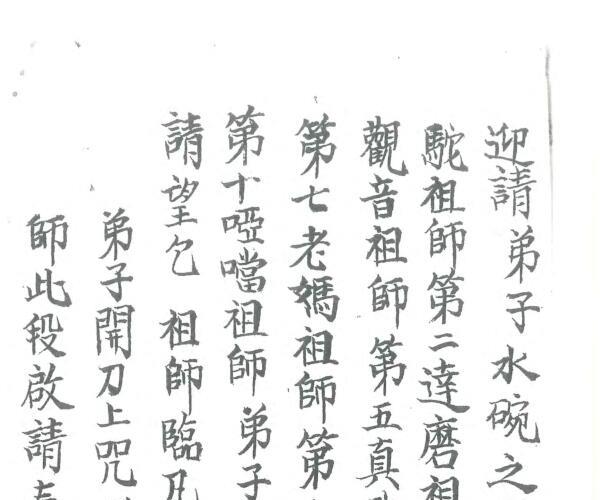 迎請弟子水碗之
駝祖師第二達磨祖
觀音祖師第五真
第七老媽祖師第
第十啞噹祖師弟子
請望乞 祖師臨凡
弟子開刀上咒
師此段啟請